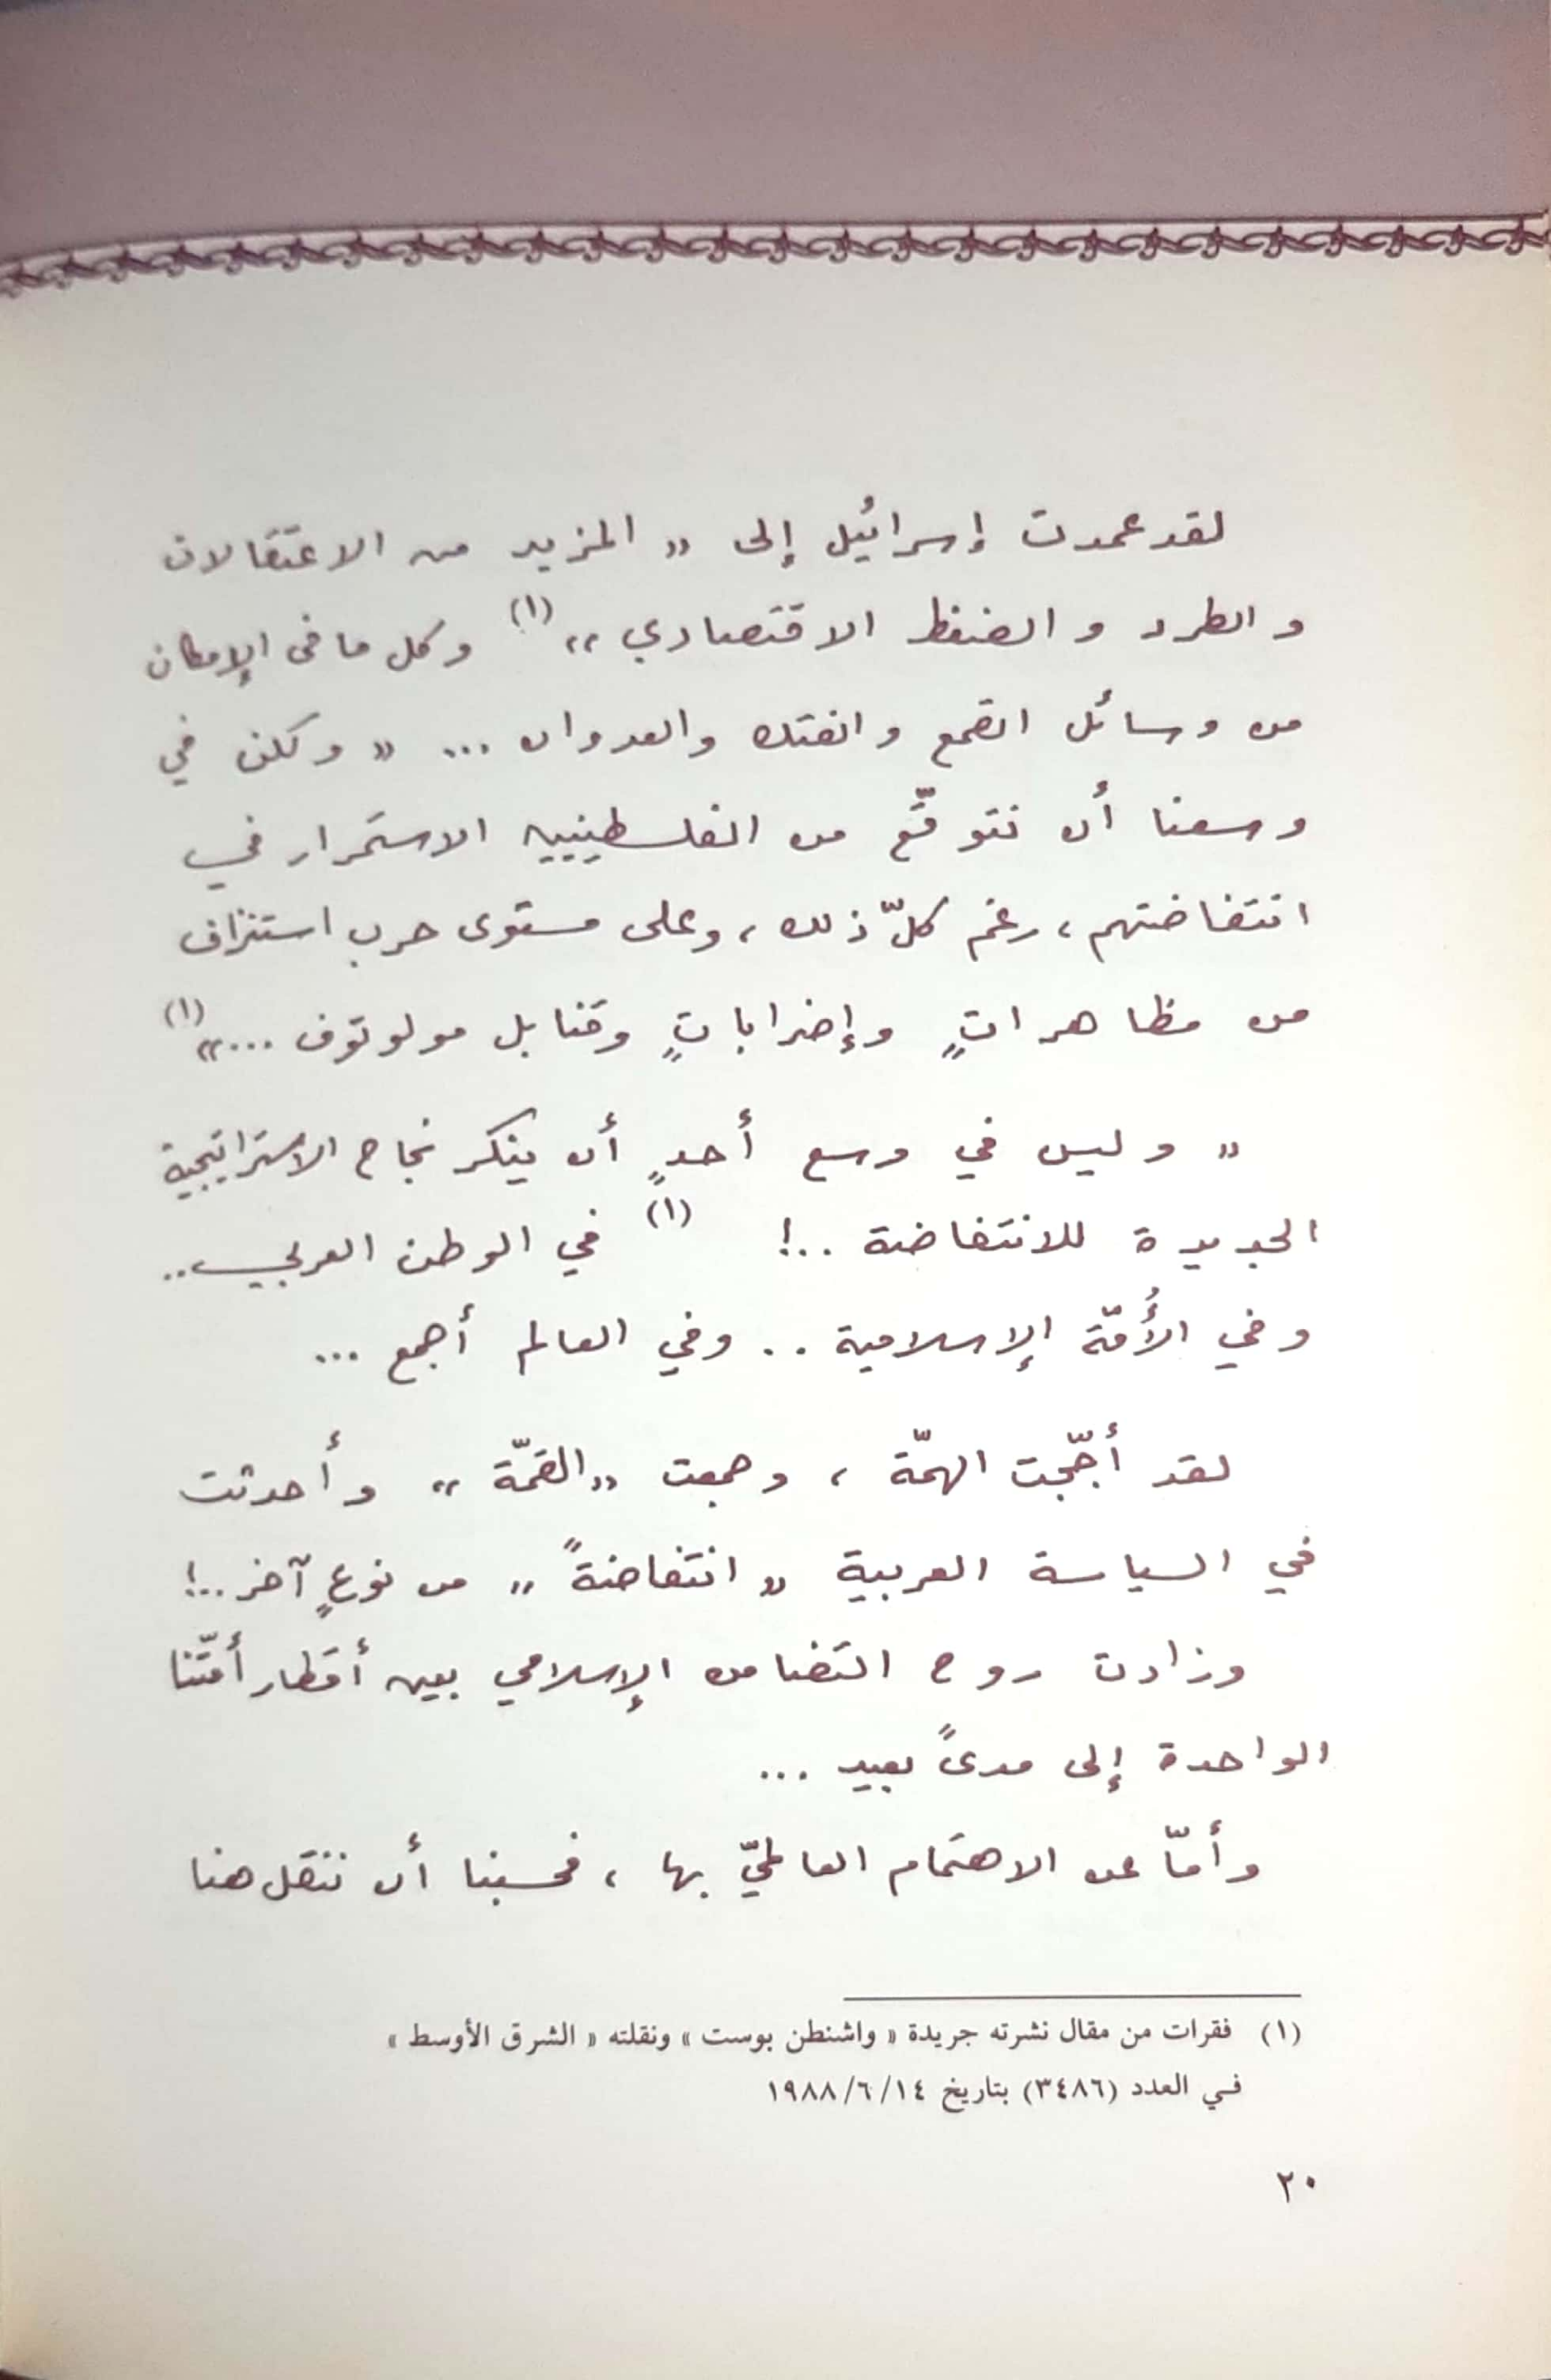 لقد عمدت إسرائيل إلى « المزيد من الاعتقالات
والطرد والضغط الاقتصادي »(١) وكل ما في الإمكان
من وسائل القمع والفتك والعدوان ... « ولكن في
وسعنا أن نتوقّع من الفلسطينيين الاستمرار في
انتفاضتهم ، رغم كلّ ذلك ، وعلى مستوى حرب استنزاف
من مظاهراتٍ وإضراباتٍ وقنابل مولوتوف ...»(١)
« وليس في وسع أحدٍ أن ينكر نجاح الاستراتيجية
الجديدة للانتفاضة ..! (١) في الوطن العربي ..
وفي الأُمّة الإسلامية .. وفي العالم أجمع ...
لقد أجّجت الهمّة ، وجمعت «القمّة » وأحدثت
في السياسة العربية « انتفاضةً » من نوعٍ آخر ..!
وزادت روح التضامن الإسلامي بين أقطار أمّتنا
الواحدة إلى مدىً بعيد ...
وأمّا عن الاهتمام العالميّ بها ، فحسبنا أن ننقل هنا
(١) فقرات من مقال نشرته جريدة « واشنطن بوست » ونقلته « الشرق الأوسط »
في العدد (٣٤٨٦) بتاريخ ١٩٨٨/٦/١٤
٢٠